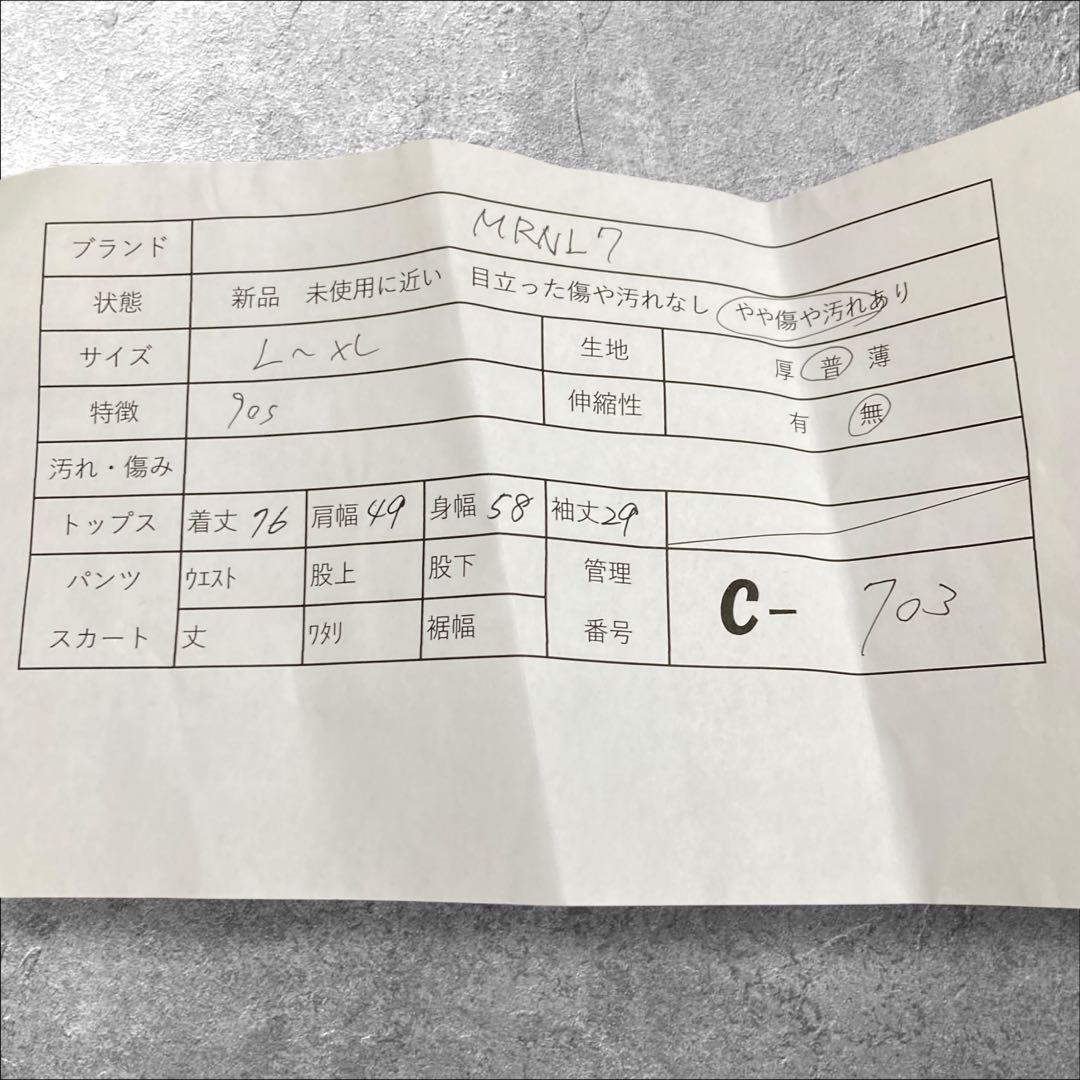 ブランド MRNL7
状態 新品 未使用に近い 目立った傷や汚れなし やや傷や汚れあり
サイズ L～XL 生地 厚 普 薄
特徴 90s 伸縮性 有 無
汚れ・傷み
トップス 着丈 76 肩幅 49 身幅 58 袖丈 29
パンツ ウエスト 股上 股下 管理
スカート 丈 ワタリ 裾幅 番号 C- 703